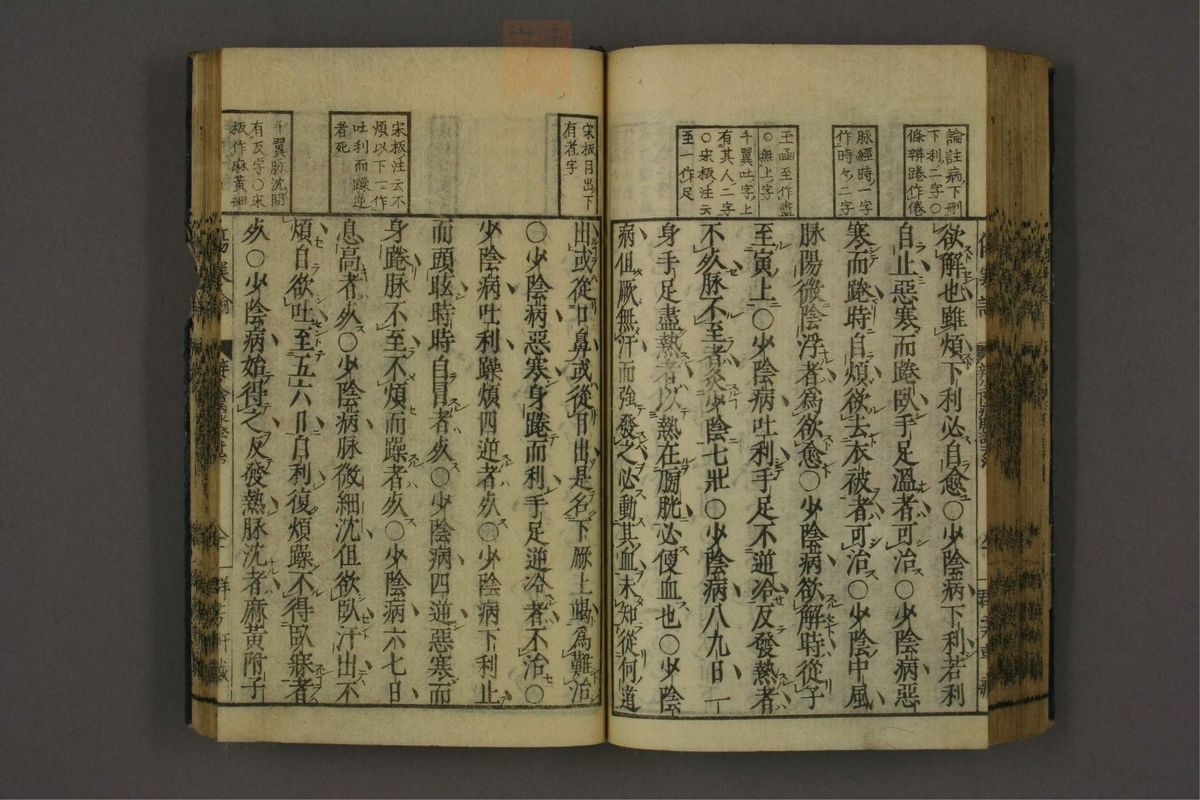 論註病下刪
下利二字〇
條辨踡作倦
脉經時一字
作時々二字
玉函至作盡
〇無上字
千翼吐字上
有其人二字
〇宋板注云
至一作足
欲解也雖煩下利必自愈〇少陰病下利若利
自止惡寒而踡臥手足溫者可治〇少陰病惡
寒而踡時自煩欲去衣被者可治〇少陰中風
脉陽微陰浮者為欲愈〇少陰病欲解時從子
至寅上〇少陰病吐利手足不逆冷反發熱者
不死脉不至者灸少陰七壯〇少陰病八九日一
身手足盡熱者以熱在膀胱必便血也〇少陰
病但厥無汗而強發之必動其血未知從何道
宋板目出下
有者字
宋板注云不
煩以下一作
吐利而躁逆
者死
千翼脉沈間
有反字〇宋
板作麻黃細
出或從口鼻或從目出是名下厥上竭為難治
〇少陰病惡寒身踡而利手足逆冷者不治〇
少陰病吐利躁煩四逆者死〇少陰病下利止
而頭眩時時自冒者死〇少陰病四逆惡寒而
身踡脉不至不煩而躁者死〇少陰病六七日
息高者死〇少陰病脉微細沈但欲臥汗出不
煩自欲吐至五六日自利復煩躁不得臥寐者
死〇少陰病始得之反發熱脉沈者麻黃附子